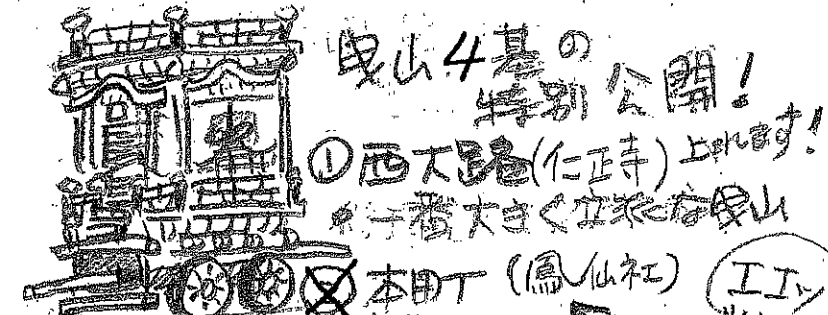 曳山4基の
特別公開!
①西大路(仁正寺)上れます!
一番大きく立派な曳山
本町(鳳仙社)
エエ